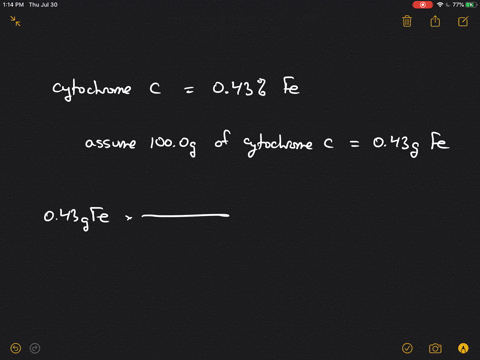 1:14 PM Thu Jul 30
77%
cytochrome C = 0.43% Fe
assume 100.0g of cytochrome C = 0.43g Fe
0.43g Fe ×